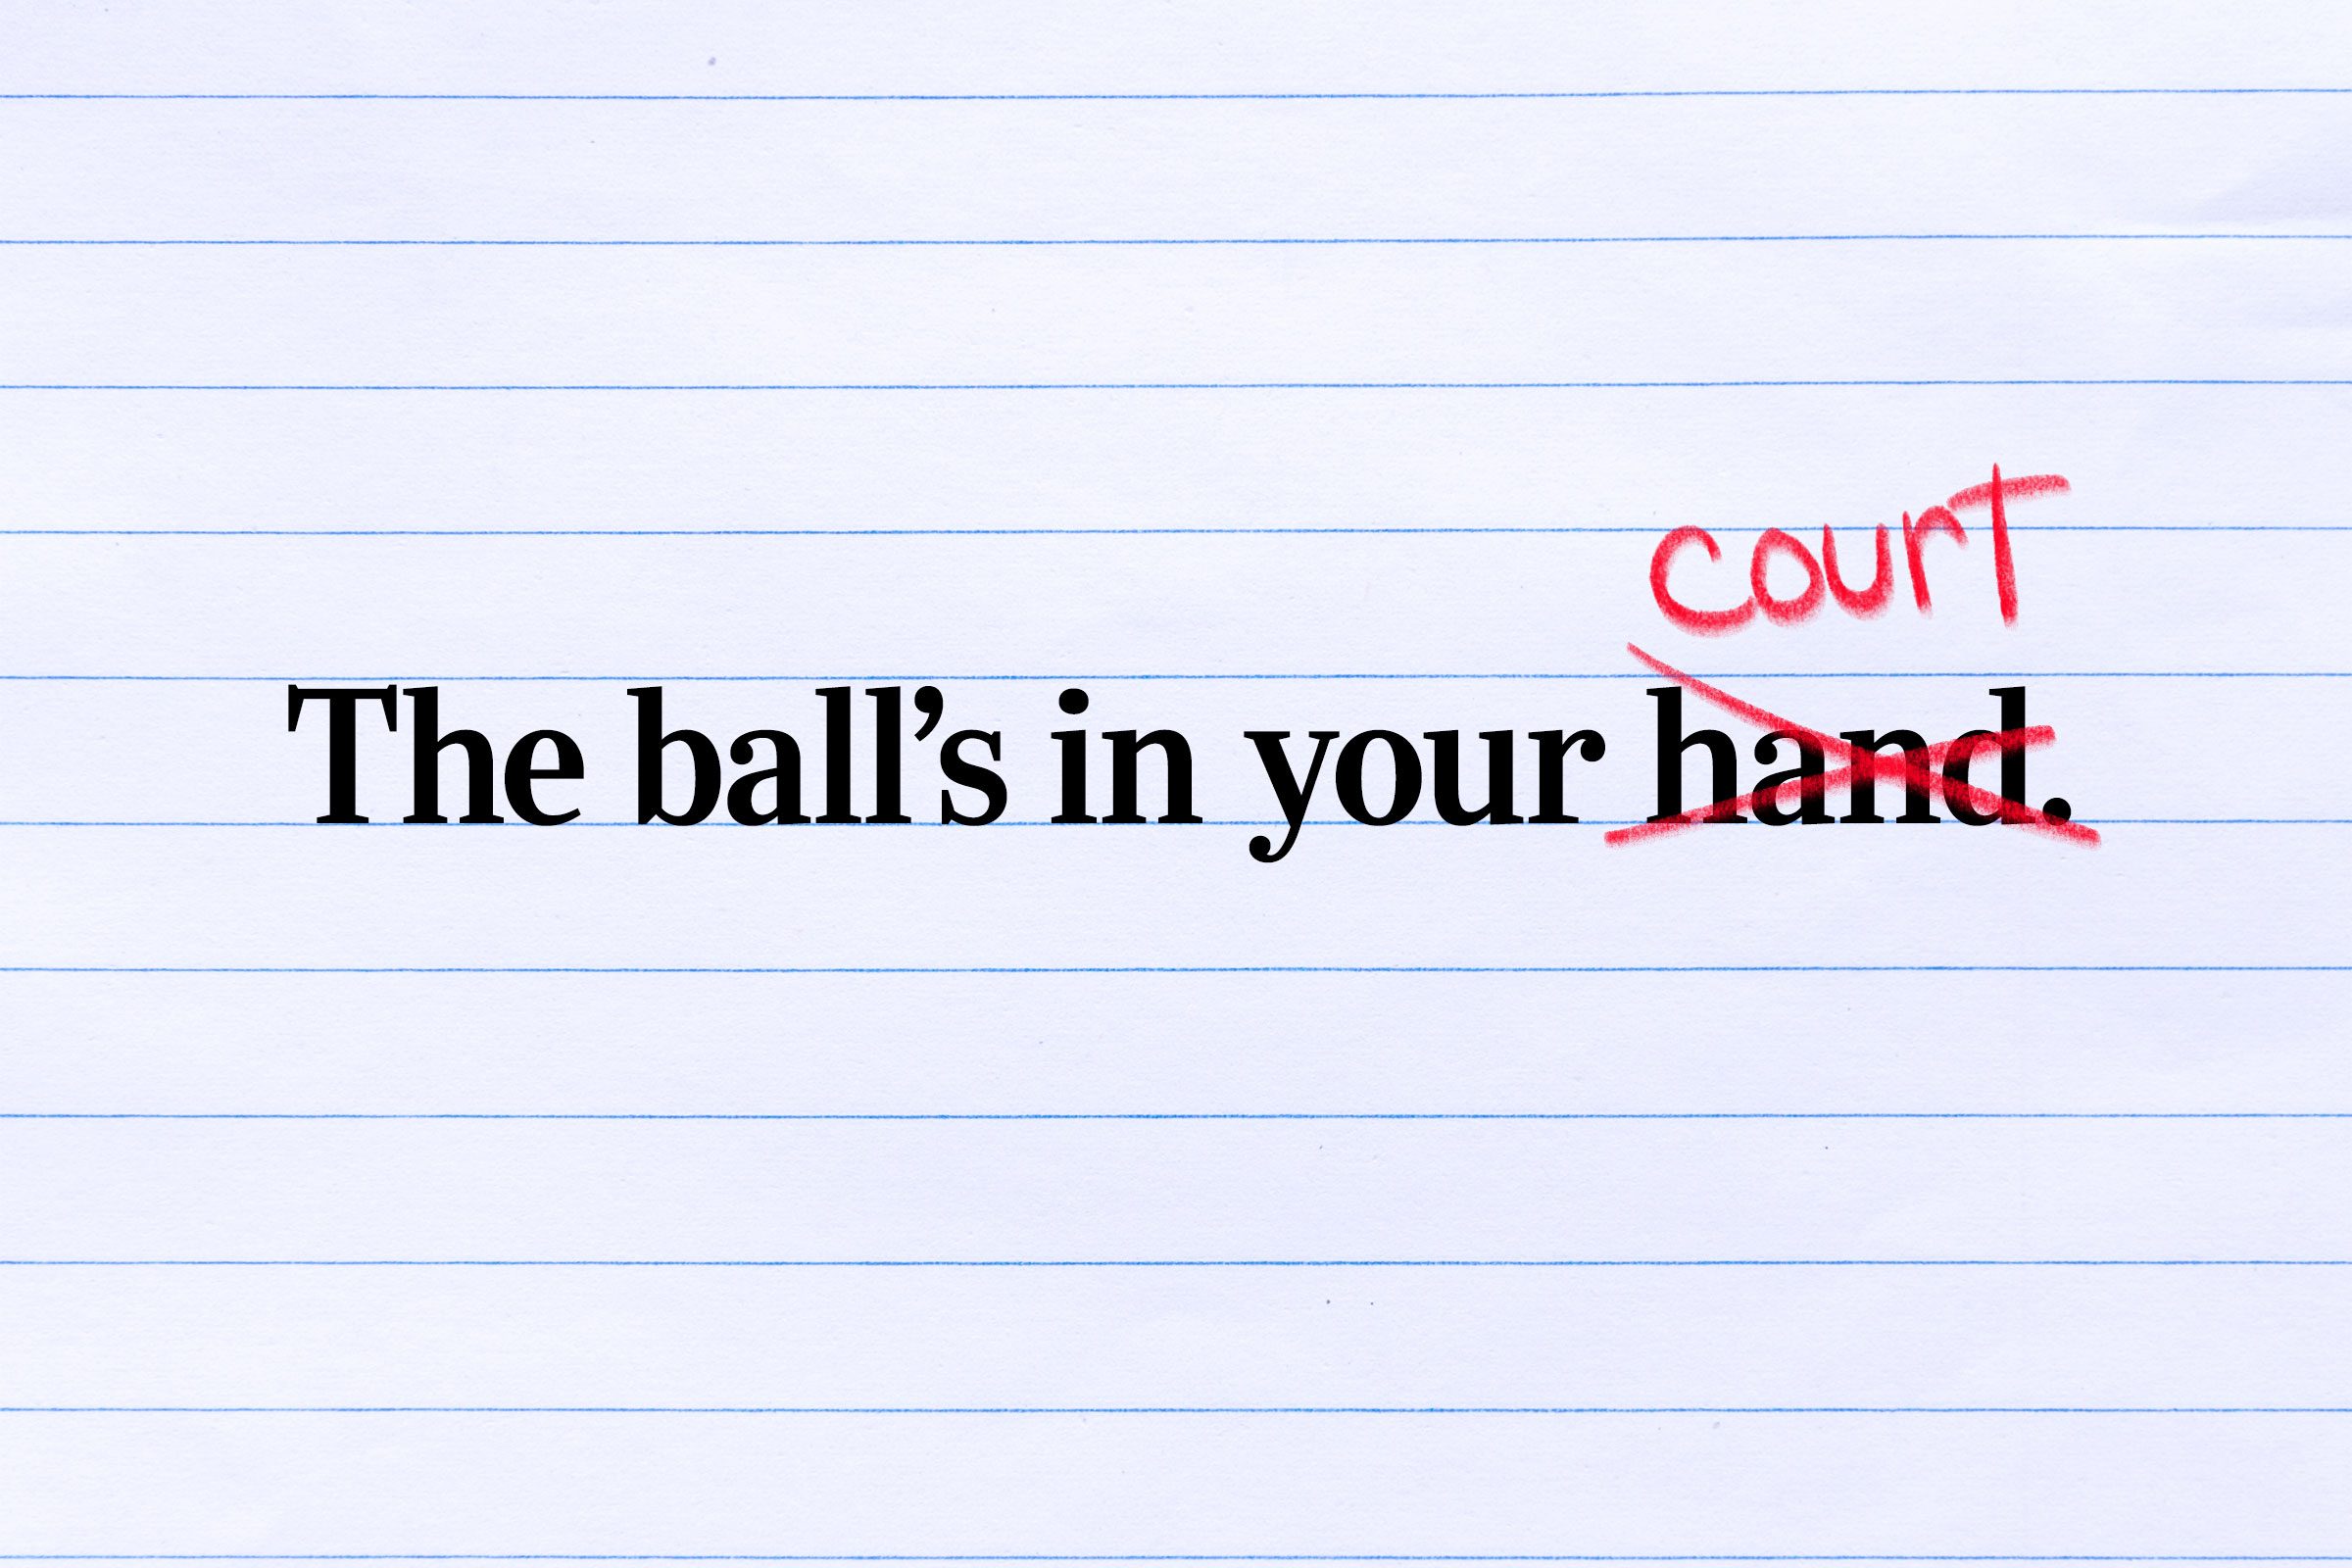 court
The ball’s in your hand.